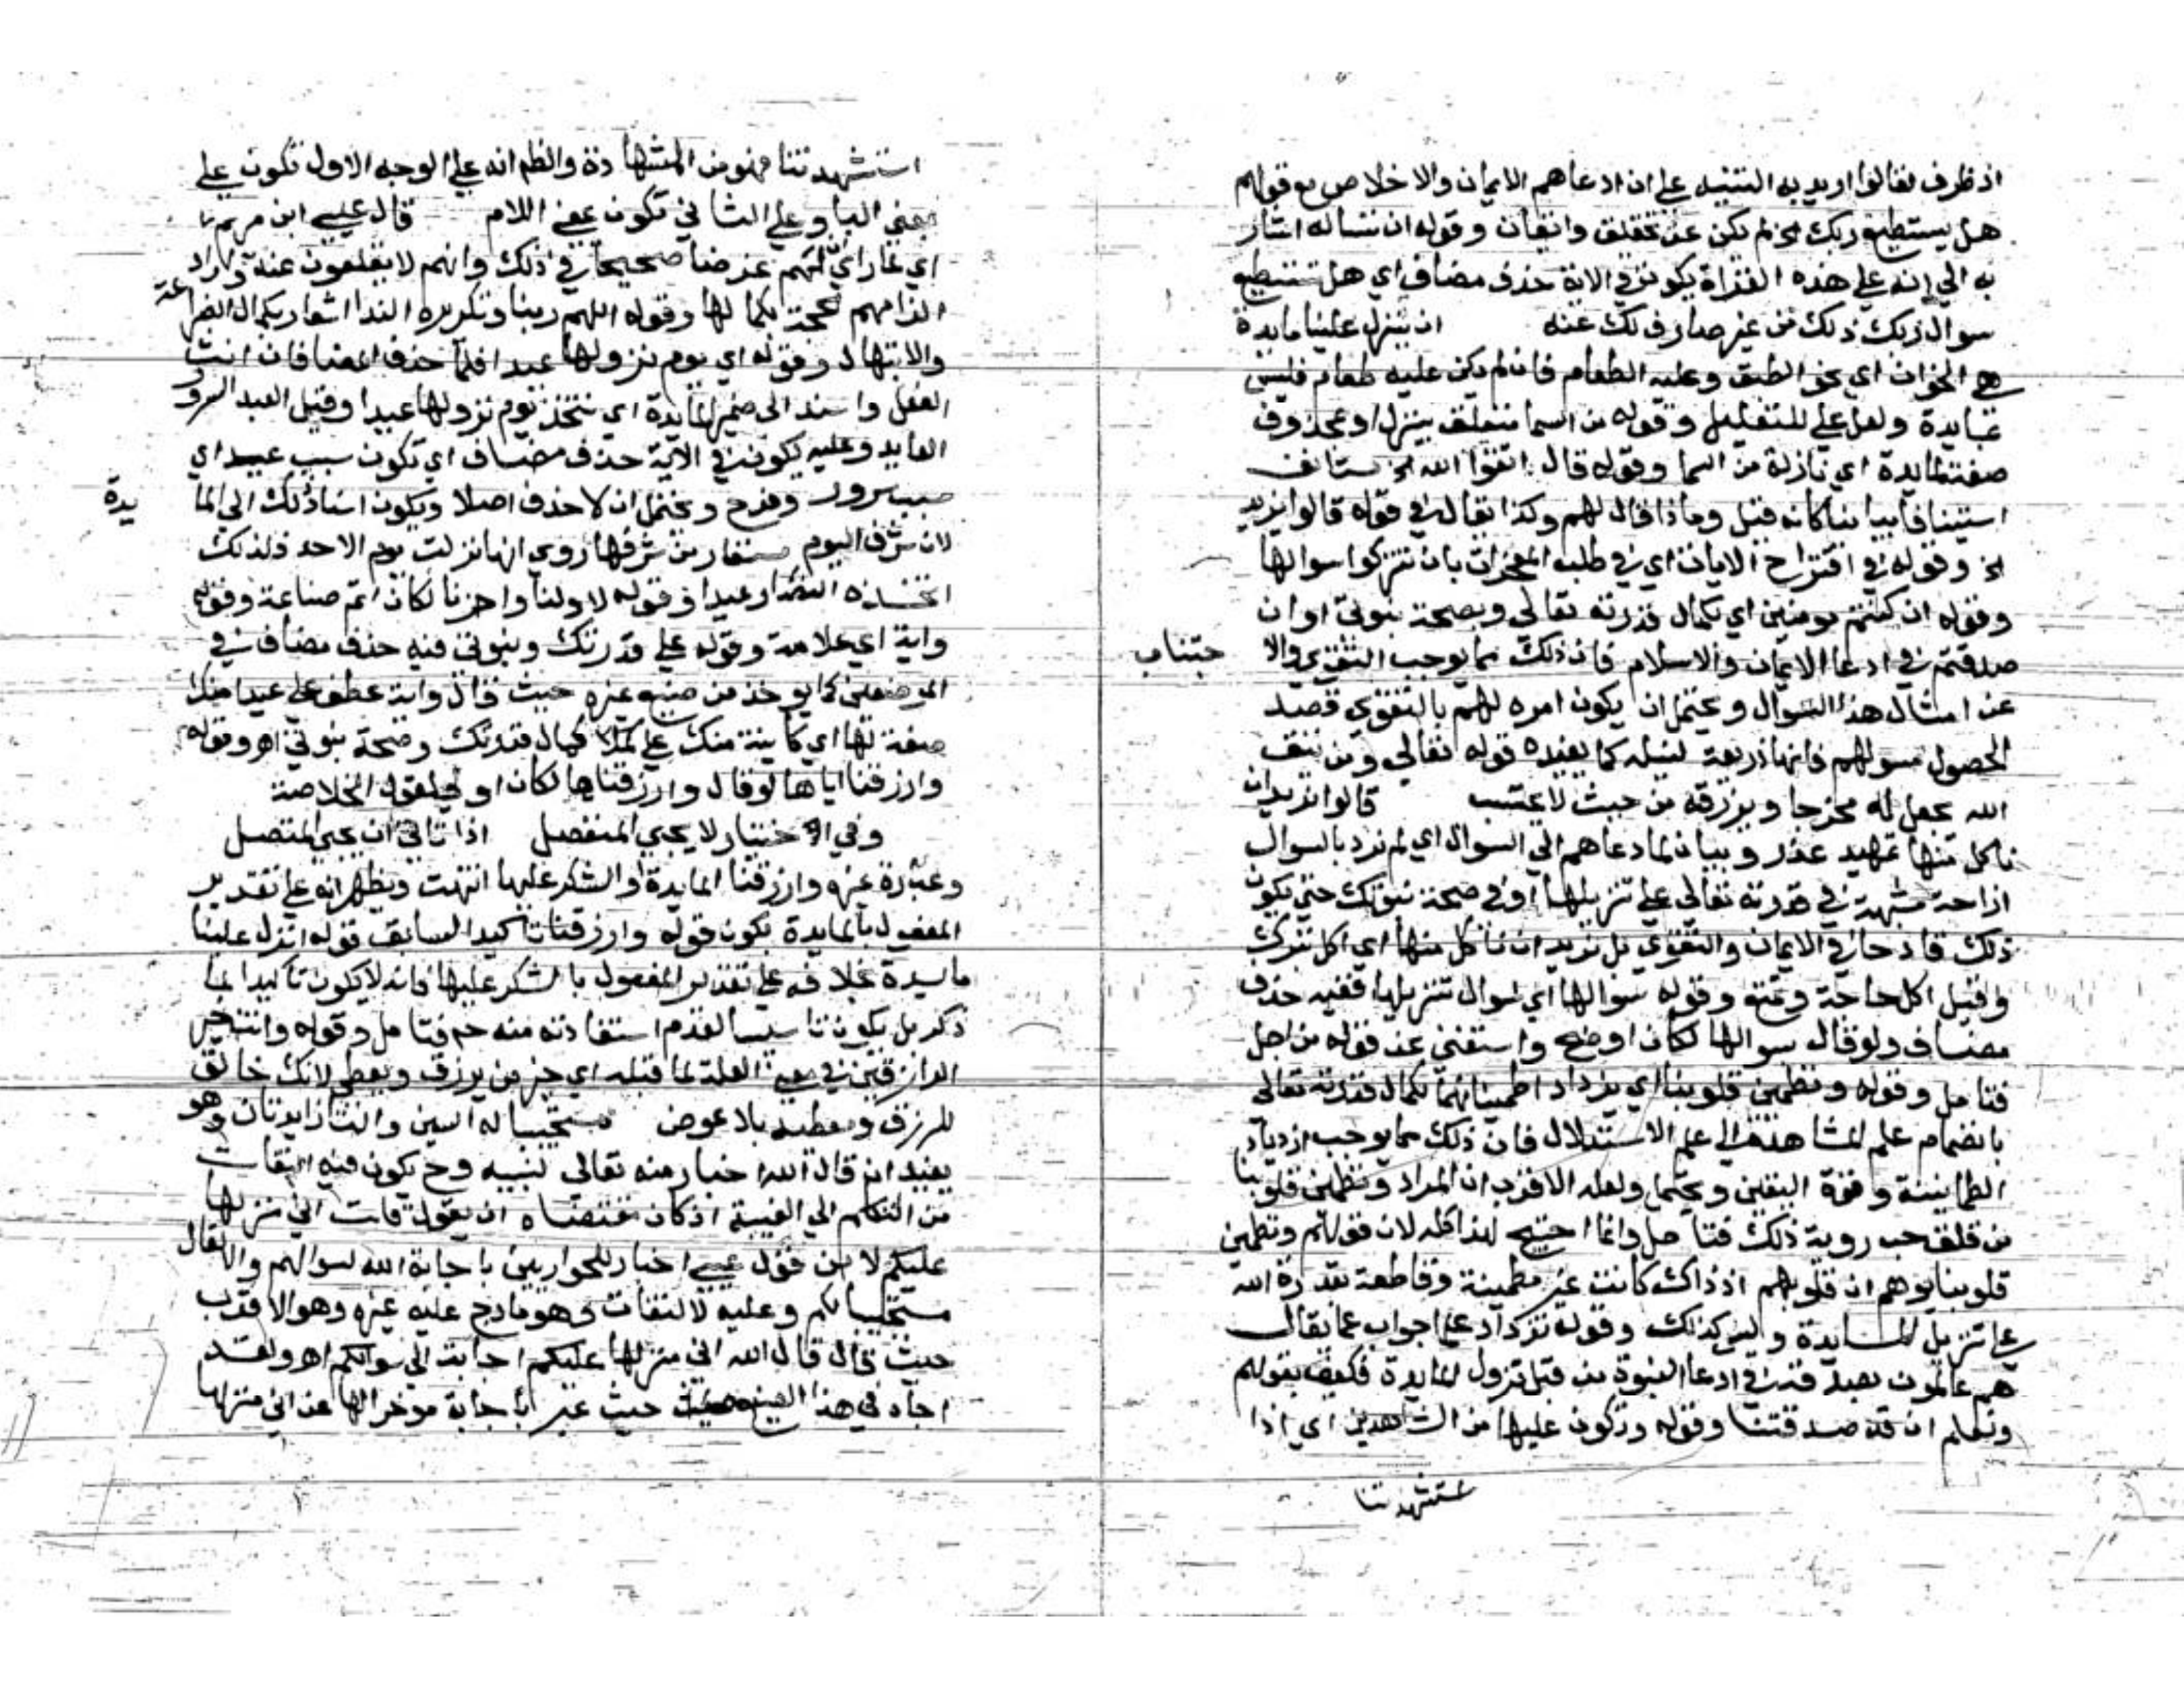 اذ ظرف لقالوا اريد به التنبيه على ان ادعاهم الايمان والاخلاص مع قولهم
هل يستطيع ربك الخ لم يكن عن تحقيق واتقان وقوله ان نساله اشار
به الى انه على هذه القراة يكون في الاية حذف مضاف اي هل تستطيع
سوال ربك ذلك من غير صارف لك عنه ان ينزل علينا مايدة
هي الخوان اي نحو الطبق وعليه الطعام فان لم يكن عليه طعام فليس
بمايدة ولعل على للتعليل وقوله من السما متعلق بينزل او بمحذوف
صفة لمايدة اي نازلة من السما وقوله قال اتقوا الله الخ ستانف
استينافا بيانيا كانه قيل وماذا قال لهم وكذا يقال في قوله قالوا نريد
الخ وقوله في اقتراح الايات اي في طلب المعجزات بان تتركوا سوالها
وقوله ان كنتم مومنين اي بكمال قدرته تعالى وبصحة نبوتي او ان
صدقتم في ادعا الايمان والاسلام فان ذلك مما يوجب التقوى والا جتناب
عن امثال هذا السوال ويحتمل ان يكون امره لهم بالتقوى قصد
الحصول سولهم فانها ذريعة لنيله كما يفيده قوله تعالى ومن يتق
الله يجعل له مخرجا ويرزقه من حيث لا يحتسب قالوا نريد ان
ناكل منها تمهيد عذر وبيان لما دعاهم الى السوال اي لم نرد بالسوال
ازاحة شبهة في قدرته تعالى على تنزيلها او في صحة نبوتك حتى يكون
ذلك قادحا في الايمان والتقوى بل نريد ان ناكل منها اي اكل تبرك
وقيل اكل حاجة وتمتع وقوله سوالها اي سوال تنزيلها ففيه حذف
مضاف ولو قال سوالها لكان اوضح واستغنى عن قوله من اجل
فتامل وقوله وتطمين قلوبنا اي يزداد اطمينانها بكمال قدرته تعالى
بانضمام علم المشاهدة الى علم الاستدلال فان ذلك مما يوجب ازدياد
الطمانينة وقوة اليقين ويحتمل ولعله الاقرب ان المراد وتطمين قلوبنا
من قلق حب روية ذلك فتامل وانما احتيج لهذا كله لان قولهم وتطمين
قلوبنا يوهم ان قلوبهم اذ ذاك كانت غير مطمينة وقاطعة بقدرة الله
على تنزيل المايدة وليس كذلك وقوله نزداد علما جواب عما يقال
هم عالمون بصدقه في ادعا النبوة من قبل نزول المايدة فكيف يقولهم
ونعلم ان قد صدقتنا وقوله ونكون عليها من الشاهدين اي اذا
ستشهدتنا
استشهدتنا فهو من الشهادة والظم انه على الوجه الاول تكون على
بمعنى البا وعلى الثاني تكون بمعنى اللام قال عيسى ابن مريم
اي لما راى لهم غرضا صحيحا في ذلك وانهم لا يقلعون عنه واراد
الزامهم لحجة بكمالها وقوله اللهم ربنا وتكريره الندا اشعار بكمال الضراعة
والابتهال وقوله اي يوم نزولها عيدا فلما حذف المضاف انث
الفعل واسند الى ضمير المايدة اي نتخذ يوم نزولها عيدا وقيل العيد السرور
العايد وعليه يكون في الاية حذف مضاف اي تكون سبب عيد اي
سبب سرور وفرح ويحتمل ان لا حذف اصلا ويكون اسناد ذلك الى الما يدة
لان شرف اليوم مستفاد من شرفها روي انها نزلت يوم الاحد فلذلك
اتخذه النصارى عيدا وقوله لاولنا واخرنا لكان اتم صناعة وقوله
واية اي علامة وقوله على قدرتك ونبوتي فيه حذف مضاف في
الموضعين كما يوخذ من صنيع غيره حيث قال واية عطف على عيدا منك
صفة لها اي كاينة منك على كمال قدرتك وصحة نبوتي اه وقوله
وارزقنا اياها لو قال وارزقناها لكان اولى لقول الخلاصة
وفي اختيار لا يجي المنفصل اذا تاتى ان يجي المتصل
وعبارة غيره وارزقنا المايدة او الشكر عليها انتهت ويظهر انه على تقدير
المفعول بالمايدة يكون قوله وارزقنا تاكيد السابق قوله انزل علينا
مايدة بخلافه على تقدير المفعول بالشكر عليها فانه لا يكون تاكيدا لما
ذكر بل يكون تاسيسا لعدم استفادته منه ح فتامل وقوله وانت خير
الرازقين في معنى العلة لما قبله اي خير من يرزق ويعطي لانك خالق
للرزق ومعطيه بلا عوض مستجيبا له السين والتا زايدتان وهو
يفيد ان قال الله اخبار منه تعالى لنبيه وح يكون فيه التفات
من التكلم الى الغيبة اذ كان مقتضاه ان يقول قلت اني منزلها
عليكم لا من قول عيسى اخبار للحواريين باجابة الله لسوالهم والا لقال
مستجيبا لكم وعليه لا التفات وهو ما درج عليه غيره وهو الاقرب
حيث قال قال الله اني منزلها عليكم اجابة الى سوالكم اه ولقد
اجاد في هذا الصنيع حيث عبر باجابة موخرا لها عن اني منزلها